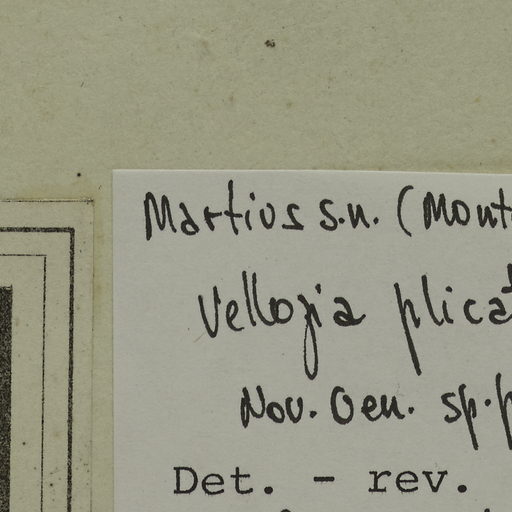 Martius s.n. (Mont
Vellozia plicat
Nov. Gen. sp. p
Det. - rev.